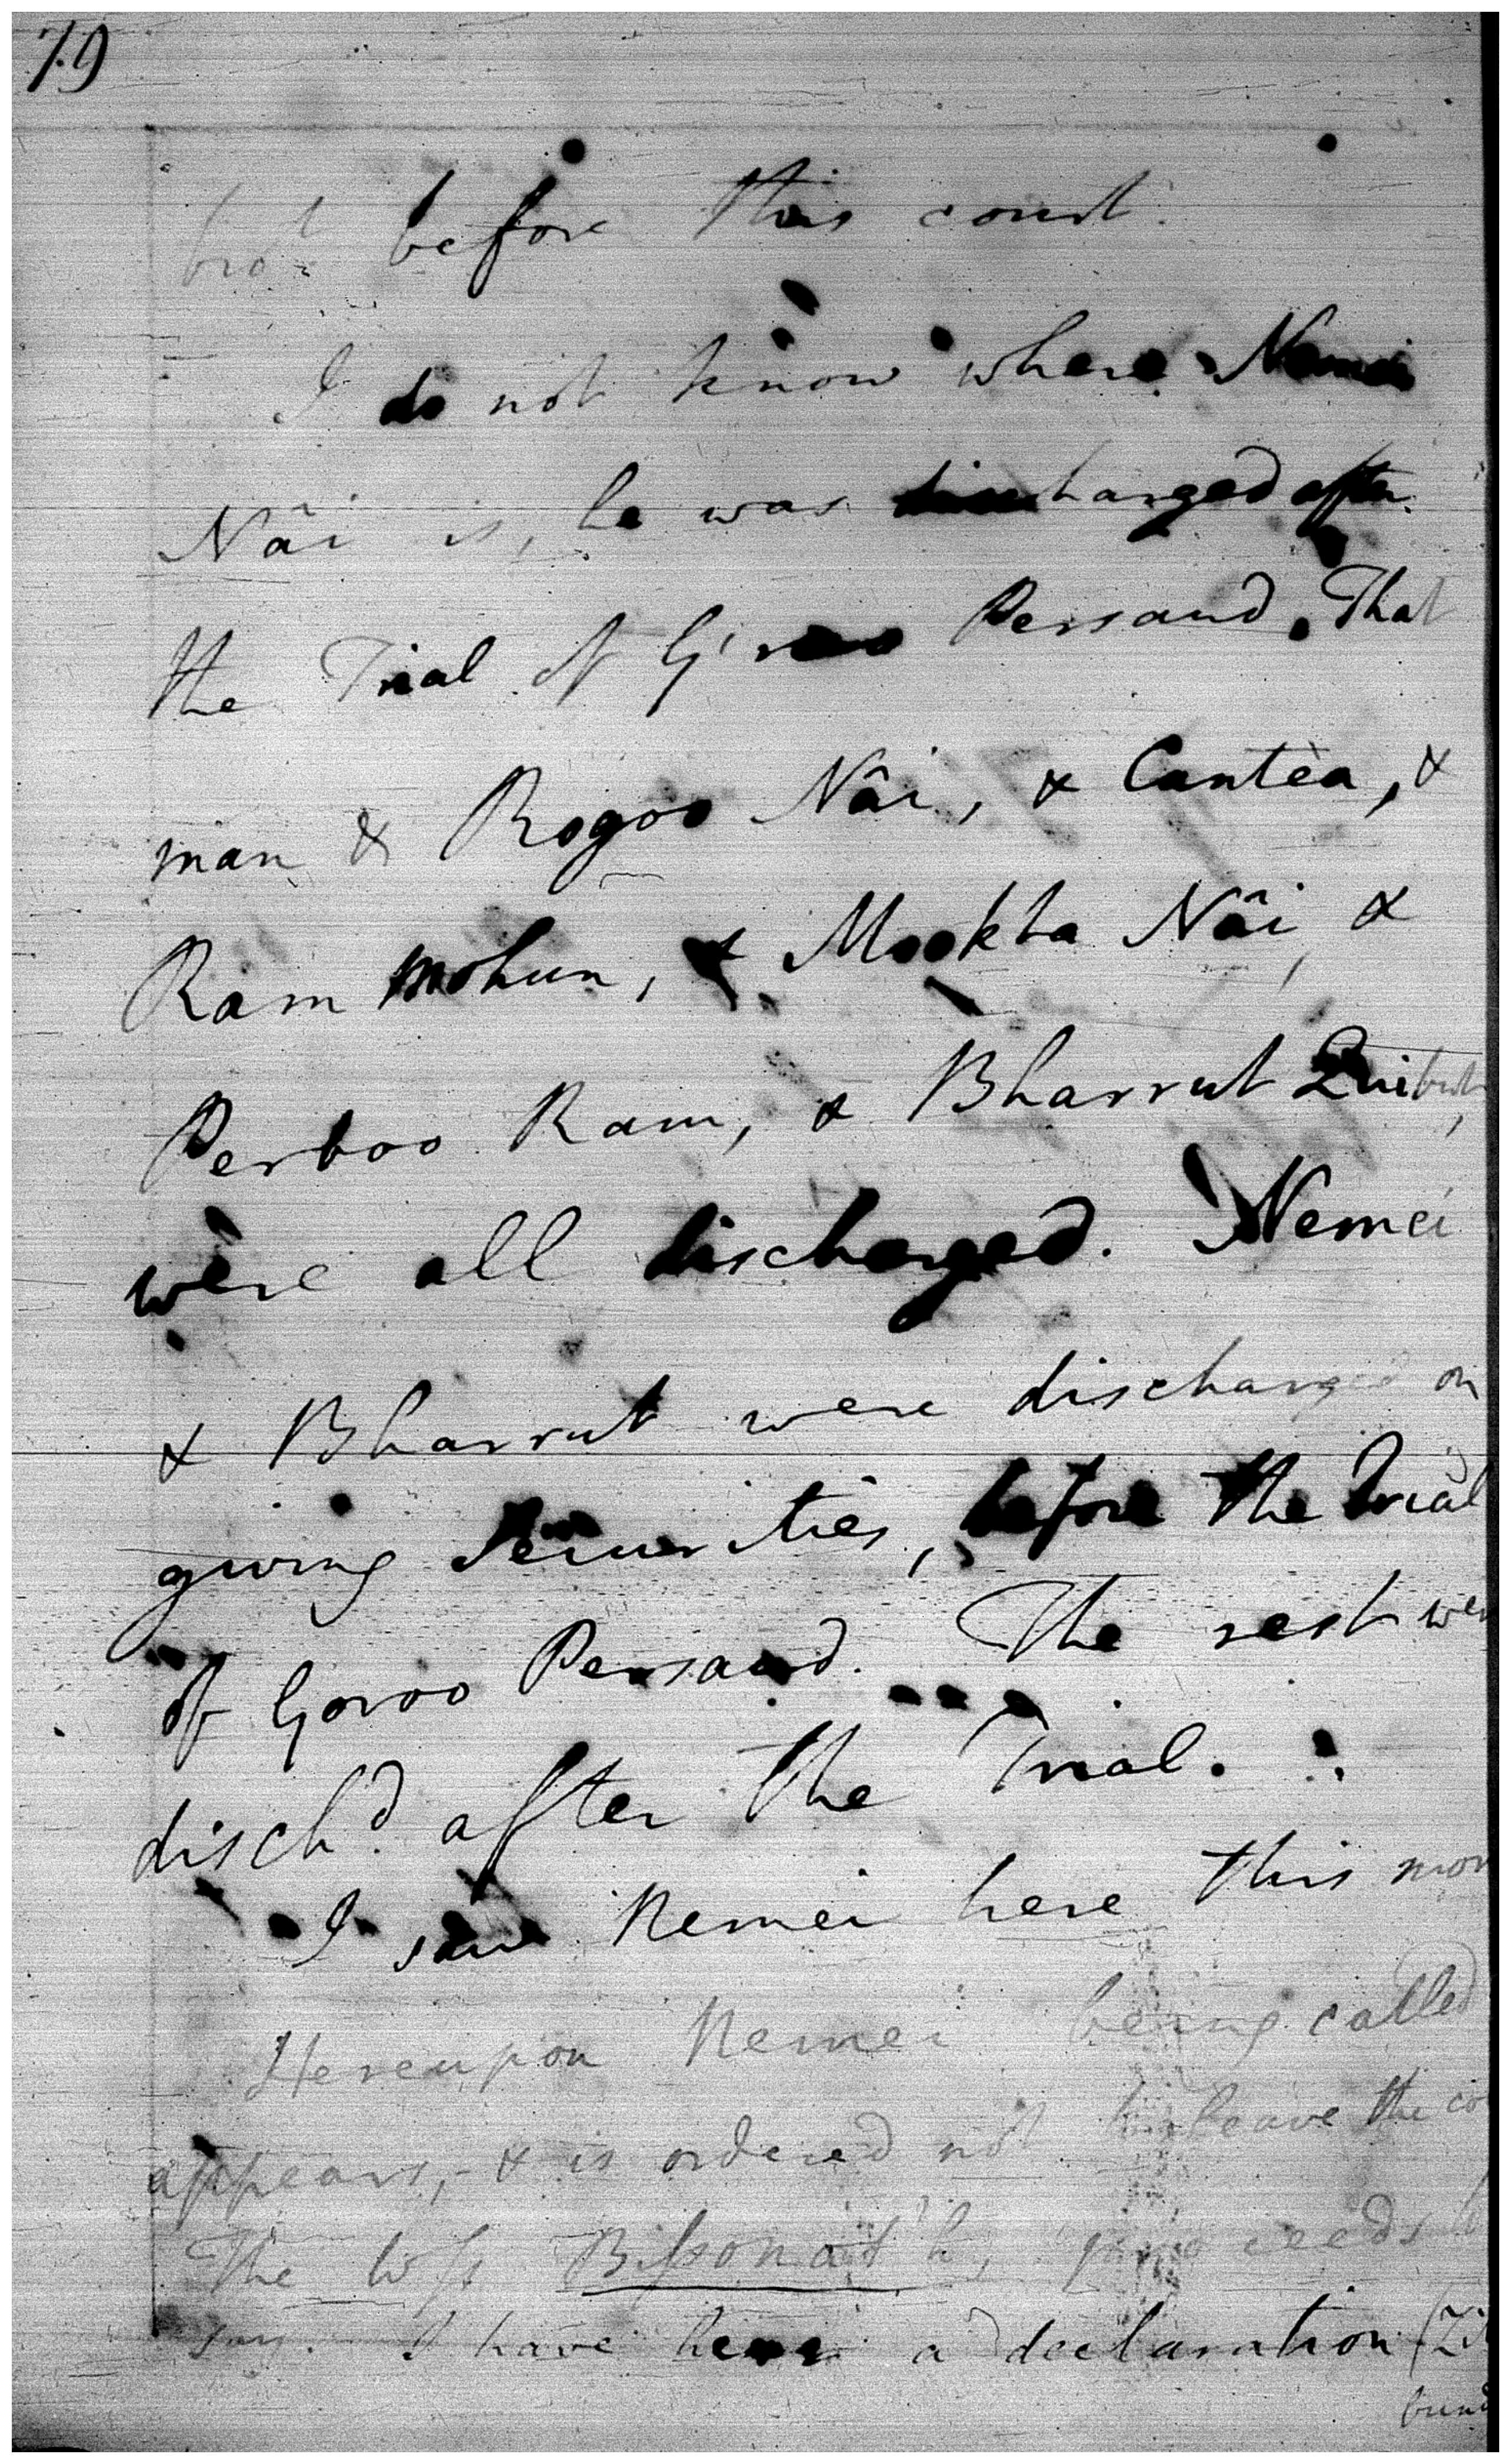 79
bro.t before this court.
I do not know where Nemei
Nâi is, he was discharged after
the Trial of G'roo Persaud. That
man & Rogoo Nâi, & Cantèa, &
Ram mohun, & Mookta Nâi, &
Perboo Ram, & Bharrut
were all discharged. Nemei
& Bharrut were discharged on
giving securities, before the Trial
of Goroo Persaud. The rest wer
disch.d after the Trial.
I saw Nemei here this mor
Hereupon Nemei being called
appears, & is ordered not to leave the co
The Wss Bissonat'h, proceeds
say. I have here a declaration